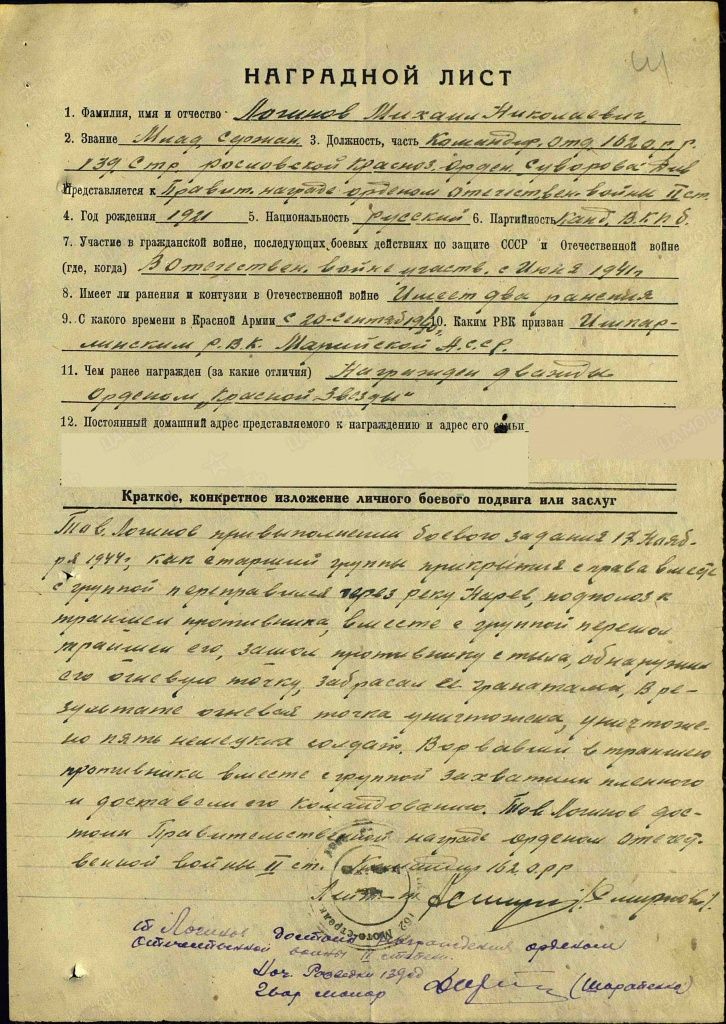 НАГРАДНОЙ ЛИСТ
1. Фамилия, имя и отчество Логинов Михаил Николаевич
2. Звание Млад. сержан. 3. Должность, часть Командир. отд. 162 о.р.р.
139 Стр. рословской Красноз. Орден. Суворова див
Представляется к Правит. награде орденом Отечествен. войны II ст.
4. Год рождения 1921 5. Национальность Русский 6. Партийность Канд. В.К.П.б.
7. Участие в гражданской войне, последующих боевых действиях по защите СССР и Отечественной войне
(где, когда) В Отечествен. войне участв. с Июня 1941 г
8. Имеет ли ранения и контузии в Отечественной войне Имеет два ранения
9. С какого времени в Красной Армии с 20-сентября 10. Каким РВК призван
Р.В.К. Марийской А.С.С.Р.
11. Чем ранее награжден (за какие отличия) Награжден дважды
Орденом „Красной Звезды"
12. Постоянный домашний адрес представляемого к награждению и адрес его семьи
Краткое, конкретное изложение личного боевого подвига или заслуг
Тов. Логинов при выполнении боевого задания 17 Нояб-
ря 1944 г, как старший группы прикрытия с права вместе
с группой переправился через реку Нарев, подполоз к
траншеи противника, вместе с группой перешол
траншеи его, зашол противнику с тыла, обнаружил
его огневую точку, забрасал ее гранатами, В ре-
зультате огневая точка уничтожена, уничтоже-
но пять немецких солдат. Ворвавши в траншею
противника вместе с группой захватили пленного
и доставели его командованию. Тов Логинов дос-
тоин Правительственной награде орденом Отечест-
венной войны II ст. Командир 162 о.рр
Лейт-т Смирнов
Логинов достоин награждения орденом
Отечественной войны II степени.
Нач. Разведки 139 сд
Гвар. майор